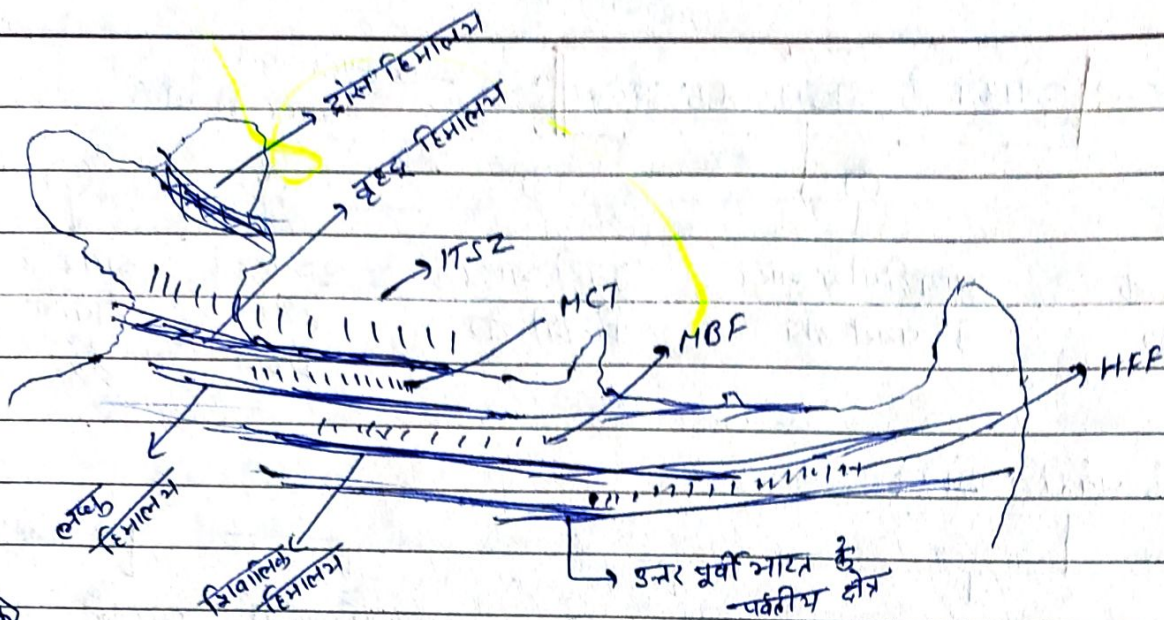 ट्रांस हिमालय
वृहद हिमालय
ITSZ
MCT
MBF
HFF
लघु
हिमालय
शिवालिक
हिमालय
उत्तर पूर्वी भारत के
पर्वतीय क्षेत्र